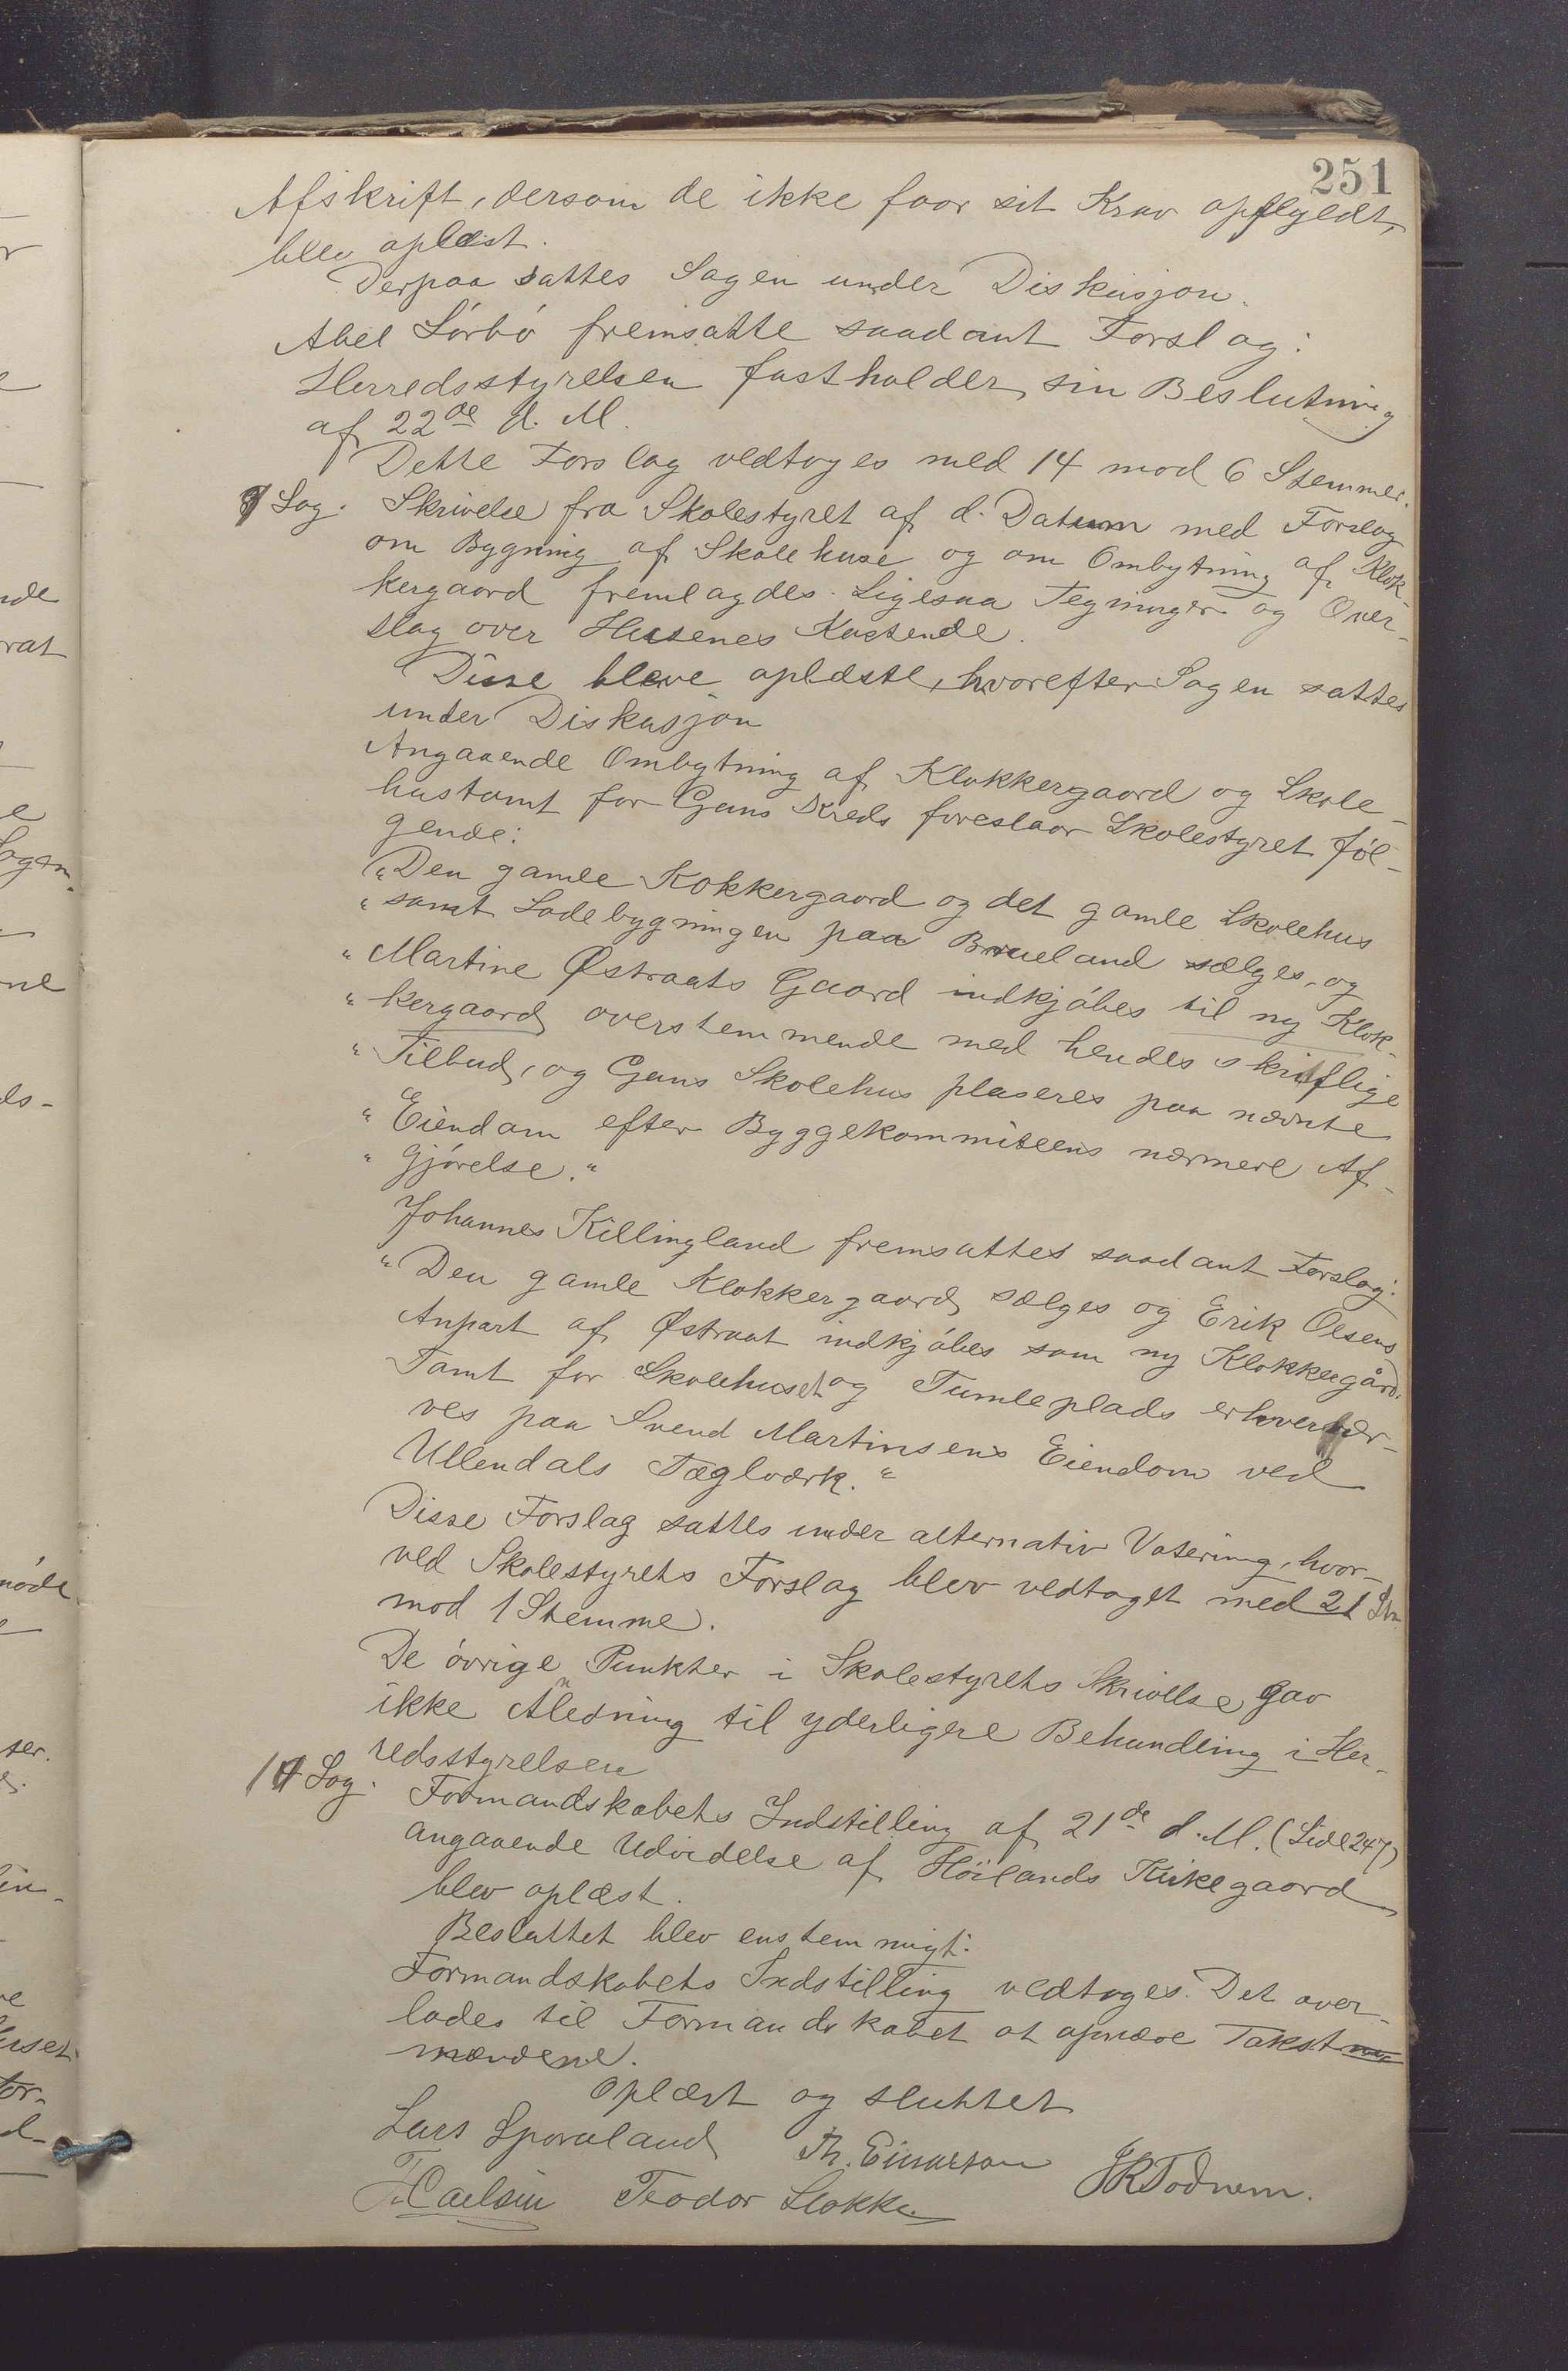 251
Afskrift, dersom de ikke faar sit Krav opfyldt,
blev oplæst.
Derpaa sattes Sagen under Diskusjon.
Abel Sörbö fremsatte saadant Forslag:
Herredsstyrelsen fastholder sin Beslutning
af 22de d. M.
Dette Forslag vedtoges med 14 mod 6 Stemmer.
Sag. Skrivelse fra Skolestyret af d. Datum med Forslag
om Bygning af Skolehuse og om Ombytning af Klok-
kergaard fremlagdes. Ligesaa Tegninger og Over-
slag over Husenes Kostende.
Disse bleve oplæste, hvorefter Sagen sattes
under Diskusjon
Angaaende Ombytning af Klokkergaard og Skole-
hustomt for Gans Kreds foreslaar Skolestyret föl-
gende:
"Den gamle Kokkergaard og det gamle Skolehus
"samt Ladebygningen paa Brueland sælges, og
"Martine Østraats Gaard indkjöbes til ny Klok-
"kergaard overstemmende med hendes skriftlige
"Tilbud, og Gans Skolehus plaseres paa nævnte
"Eiendom efter Byggekommiteens nærmere Af-
"gjörelse."
Johannes Killingland fremsattes saadant Forslag:
"Den gamle Klokkergaard sælges og Erik Olsens
Anpart af Østraat indkjöbes som ny Klokkergård.
Tomt for Skolehuset og Tumleplads erhver-
ves paa Svend Martinsens Eiendom ved
Ullendals Tæglværk."
Disse Forslag sattes under alternativ Votering, hvor-
ved Skolestyrets Forslag blev vedtaget med 21 Stm
mod 1 Stemme.
De övrige Punkter i Skolestyrets Skrivelse gav
ikke Anledning til yderligere Behandling i Her-
redsstyrelsen
Sag. Formandskabets Indstilling af 21de d. M. (Side 247)
angaaende Udvidelse af Höilands Kirkegaard
blev oplæst.
Besluttet blev enstemmigt:
Formandskabets Indstilling vedtoges. Det over-
lades til Formandskabet at opnæve Takst
mændene.
Oplæst og sluttet
Lars Sporaland Th. Einarson JKTodnem.
T. Carlsen Teodor Stokke